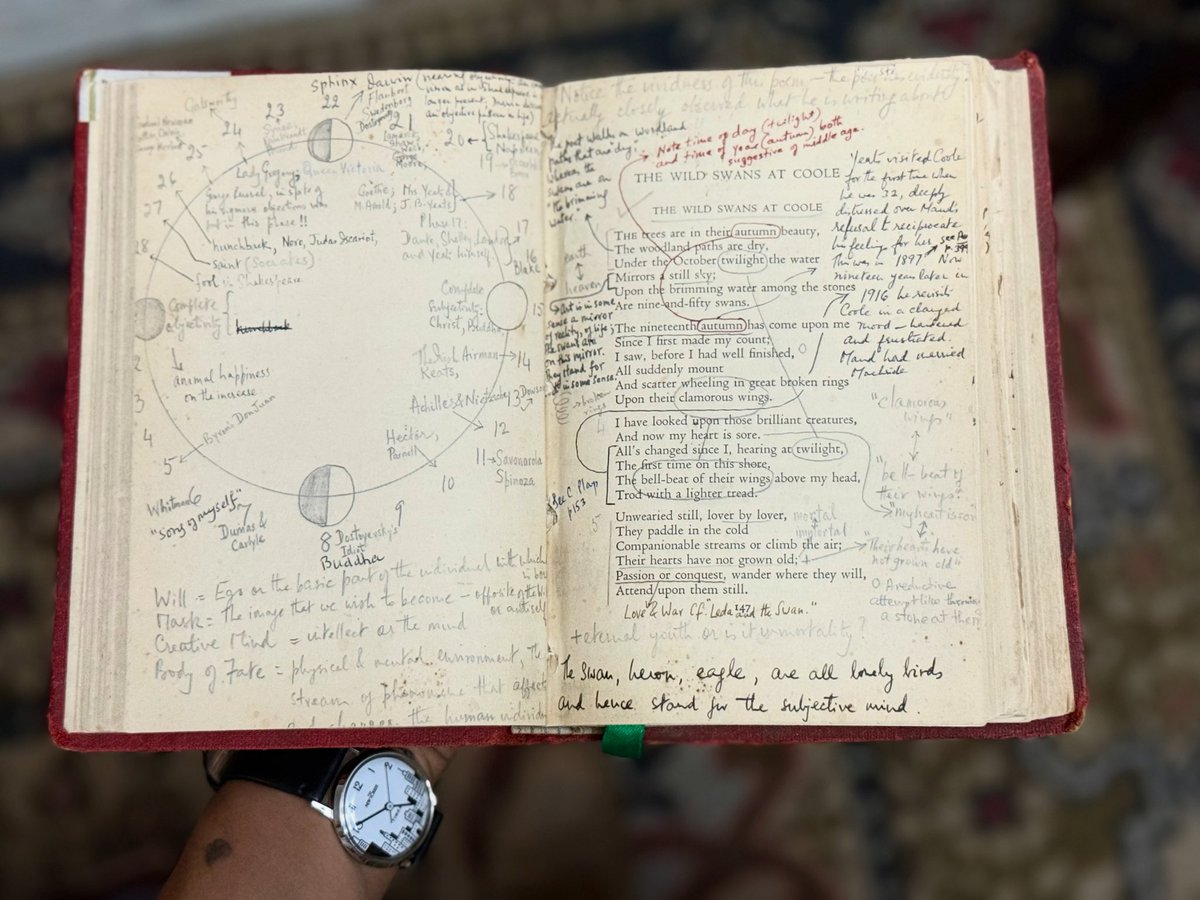 Sphinx Darwin
22
Flaubert
Swedenborg
Dostoyevsky
21
Lamarck
Shaw
Wells,
George
Moore,
20
Shakespeare
Napoleon
19
18
23
24
25
26
27
28
Lady Gregory; Queen Victoria
hunchback, Nero, Judas Iscariot,
saint (Socrates)
fool in Shakespeare
Complete
objectivity
animal happiness
on the increase
Byron's Don Juan
Goethe; Mrs Yeats
M. Arnold; J. B. Yeats
Phase 17:
Dante, Shelley, Landor
and Yeats himself.
17
16
Blake
Complete
subjectivity:
Christ, Buddha
15
The Irish Airman
Keats,
14
Achilles & Nietzsche
13 Dowson
12
Hector,
Parnell
11 Savonarola
Spinoza
10
9
8 Dostoyevsky's
Idiot
Buddha
2
3
4
5
Whitman 6
"Song of myself"
7
Dumas &
Carlyle
Will = Ego or the basic part of the individual with which
Mask = The image that we wish to become — opposite of the
Creative Mind = intellect or the mind
Body of Fate = physical & mental environment, the
stream of phenomena that affect
the human individ
Notice the vividness of this poem — the poet has evidently
actually closely observed what he is writing about
The poet walks on woodland
paths that are "dry,"
whereas the
swans are on
"the brimming
water."
Note time of day (twilight)
and time of year (autumn) both
suggestive of middle age.
THE WILD SWANS AT COOLE
THE WILD SWANS AT COOLE
THE trees are in their autumn beauty,
The woodland paths are dry,
Under the October twilight the water
Mirrors a still sky;
Upon the brimming water among the stones
Are nine-and-fifty swans.
The nineteenth autumn has come upon me
Since I first made my count;
I saw, before I had well finished,
All suddenly mount
And scatter wheeling in great broken rings
Upon their clamorous wings.
I have looked upon those brilliant creatures,
And now my heart is sore.
All's changed since I, hearing at twilight,
The first time on this shore,
The bell-beat of their wings above my head,
Trod with a lighter tread.
Unwearied still, lover by lover,
They paddle in the cold
Companionable streams or climb the air;
Their hearts have not grown old;
Passion or conquest, wander where they will,
Attend upon them still.
147
earth
heaven
Art is in some
sense a mirror
of reality, of life;
the swans are
on this mirror.
They stand for
in some sense.
broken
rings
4
See C. Plays
p 153
5
mortal
immortal
Yeats visited Coole
for the first time when
he was 32, deeply
distressed over Maud's
refusal to reciprocate
his feeling for her.
This was in 1897. Now
nineteen years later in
1916 he revisits
Coole in a changed
mood — hardened
and frustrated.
Maud had married
MacBride
"clamorous
wings"
"bell-beat of
their wings"
"my heart is sore"
"Their hearts have
not grown old"
attempt like throwing
a stone at them
Love & War Cf. "Leda and the Swan."
+ eternal youth or is it immortality?
The swan, heron, eagle, are all lonely birds
and hence stand for the subjective mind.
12
2